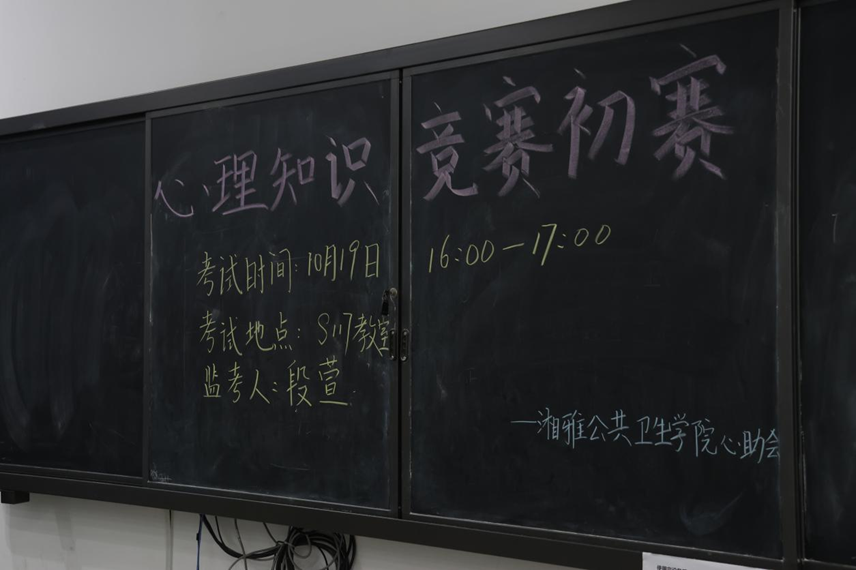 心理知识竞赛初赛
考试时间：10月19日 16:00—17:00
考试地点：S117教室
监考人：段萱
—湘雅公共卫生学院心助会